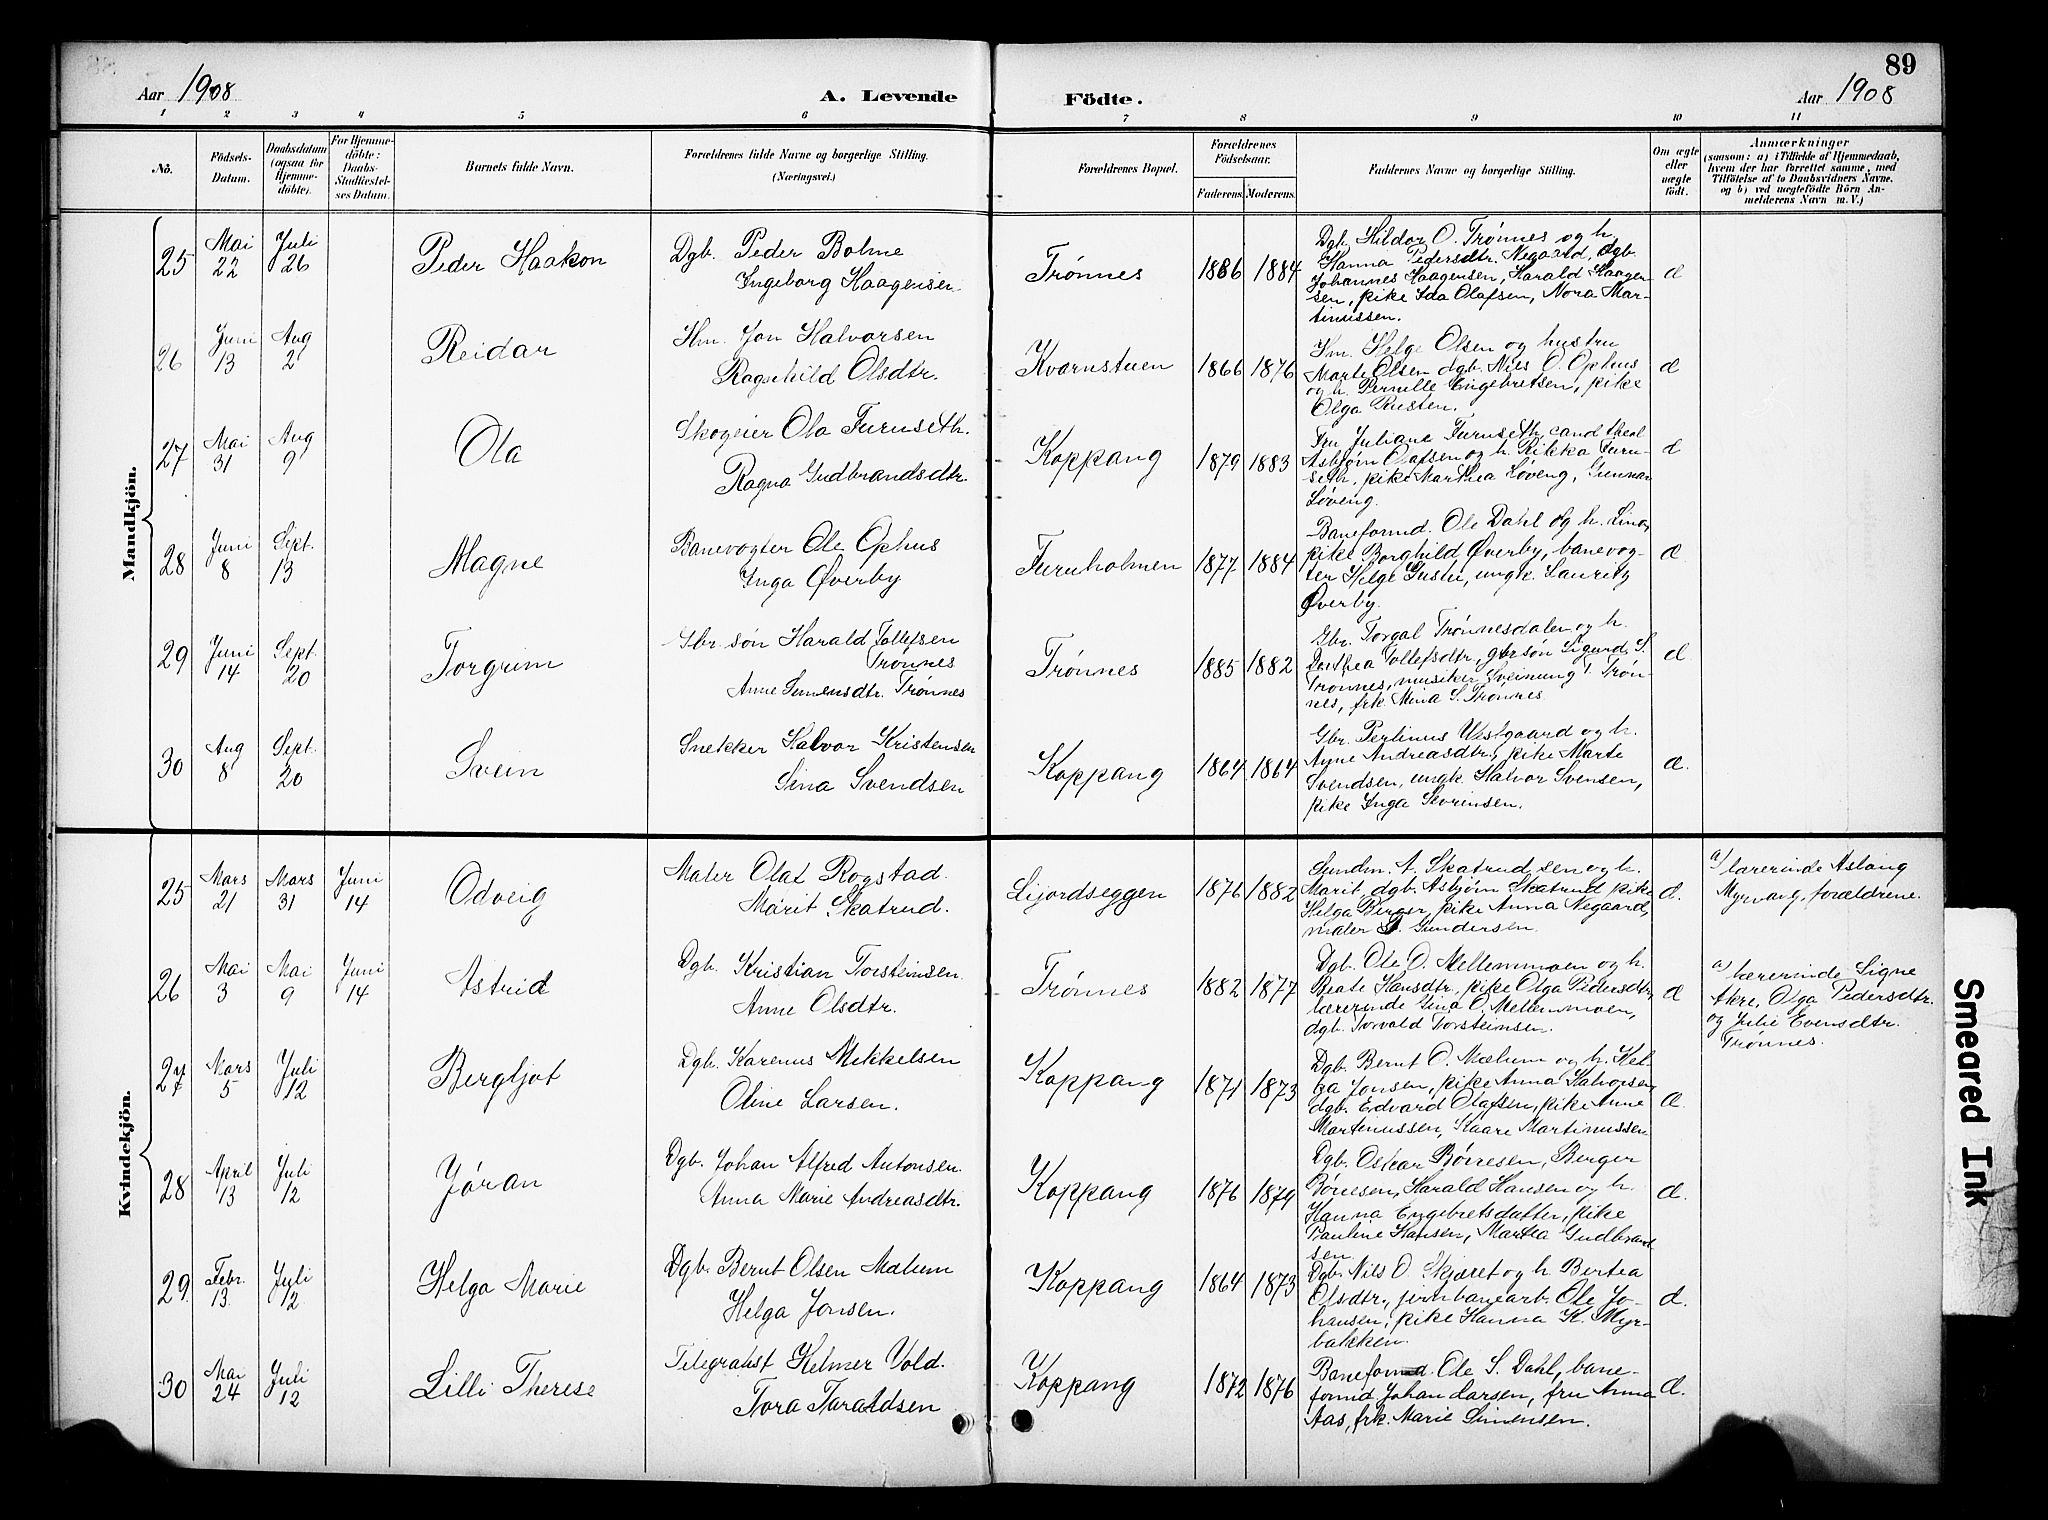 89
Aar 1908
A. Levende Födte.
Aar 1908
1 2 3 4 5 6 7 8 9 10 11
No.
Födsels-
Datum.
Daabsdatum
(ogsaa for
Hjemme-
döbte).
For Hjemme-
döbte:
Daabs-
Stadfæstel-
ses Datum.
Barnets fulde Navn.
Forældrenes fulde Navne og borgerlige Stilling.
(Næringsvei.)
Forældrenes Bopæl.
Forældrenes
Födselsaar.
Faderens. Moderens.
Faddernes Navne og borgerlige Stilling.
Om ægte
eller
uægte
födt.
Anmærkninger
(saasom: a) i Tilfælde af Hjemmedaab,
hvem der har forrettet samme, med
Tilföielse af to Daabsvidners Navne,
og b) ved uægtefödte Börn An-
melderens Navn m. V.)
Mandkjön.
25
Mai
22
Juli
26
Peder Haakon
Dgb. Peder Bolme
Ingeborg Haagensen
Trønnes
1886 1884
Dgb. Hildor O. Trønnes og h.
Hanna Pedersdtr. Negaard, dgb.
Johannes Haagensen, Harald Haagen-
sen, pike Ida Olafsen, Nora Mar-
tinussen.
26
Juni
13
Aug
2
Reidar
Hm. Jon Halvorsen
Ragnhild Olsdtr.
Kvarnstuen
1866 1876
Hm. Helge Olsen og hustru
Marte Olsen dgb. Nils O. Ophus
og h. Pernille Engebretsen, pike
Olga Rusten.
27
Mai
31
Aug
9
Ola
Skogeier Ola Furuseth.
Ragna Gudbrandsdtr.
Koppang
1879 1883
Fru Juliane Furuseth, cand theol
Asbjørn Olafsen og h. Rikka Furu-
seth, pike Marthea Løveng, Gunnar
Løveng.
28
Juni
8
Sept.
13
Magne
Banevogter Ole Ophus
Inga Øverby
Furuholmen
1877 1884
Baneformd. Ole Dahl og h. Lina,
pike Borghild Øverby, banevog-
ter Helge Gustu, ungk. Lauritz
Øverby.
29
Juni
14
Sept.
20
Torgrim
Gbr. søn Harald Tollefsen
Trønnes
Anne Simensdtr. Trønnes
Trønnes
1885 1882
Gbr. Torgal Trønnesdalen og h.
Dorthea Tollefsdtr, gbr søn Sigurd S.
Trønnes, musiker Sveinung T. Trøn-
nes, frk. Mina S. Trønnes.
30
Aug
8
Sept.
20
Svein
Snekker Halvor Kristensen
Sina Svendsen
Koppang
1864 1864
Gbr. Perlinus Vestgaard og h.
Anne Andreasdtr, pike Marte
Svendsen, ungk. Halvor Svensen,
pike Inga Sevrinsen.
Kvindekjön.
25
Mars
21
Mars
31
Juni
14
Odveig
Maler Olaf Rogstad.
Marit Skatrud.
Lijordseggen
1876 1882
Gundm. A. Skatrud, sen og h.
Marit, dgb. Asbjørn Skatrud, pike
Helga Berger, pike Anna Negaard,
maler S. Gundersen.
a) lærerinde Aslaug
Myrvang, forældrene.
26
Mai
3
Mai
9
Juni
14
Astrid
Dgb. Kristian Torsteinsen.
Anne Olsdtr.
Trønnes
1882 1877
Dgb. Ole O. Mellemmoen og h.
Beate Hansdtr, pike Olga Pedersdtr,
lærerinde Gina O. Mellemmoen,
dgb. Torvald Torsteinsen.
a) lærerinde Signe
Akre, Olga Pedersdtr.
og Julie Evensdtr.
Trønnes.
27
Mars
5
Juli
12
Bergljot
Dgb. Karenus Mikkelsen
Oline Larsen.
Koppang
1871 1873
Dgb. Bernt O. Mælum og h. Hel-
ga Jonsen, pike Anna Halvorsen,
dgb. Edvard Olafsen, pike Anne
Martinussen, Kaare Martinussen
28
April
13
Juli
12
Jøran
Dgb. Johan Alfred Antonsen.
Anna Marie Andreasdtr.
Koppang
1876 1879
Dgb. Oskar Børresen, Berger
Børresen, Harald Hansen og h.
Hanna Engebretsdatter, pike
Pauline Hansen, Martea Gudbrand-
sen.
29
Febr.
13
Juli
12
Helga Marie
Dgb. Bernt Olsen Mælum
Helga Jonsen.
Koppang
1864 1873
Dgb. Nils O. Skjæret og h Bertea
Olsdtr., jernbanearb. Ole Jo-
hansen, pike Hanna K. Myr-
bakken.
30
Mai
24
Juli
12
Lilli Therese
Telegrafist Helmer Vold.
Tora Taraldsen
Koppang
1872 1876
Baneformd. Ole S. Dahl, bane-
formd Johan Larsen, fru Anna
Aas, frk. Marie Simensen.
Smeared Ink